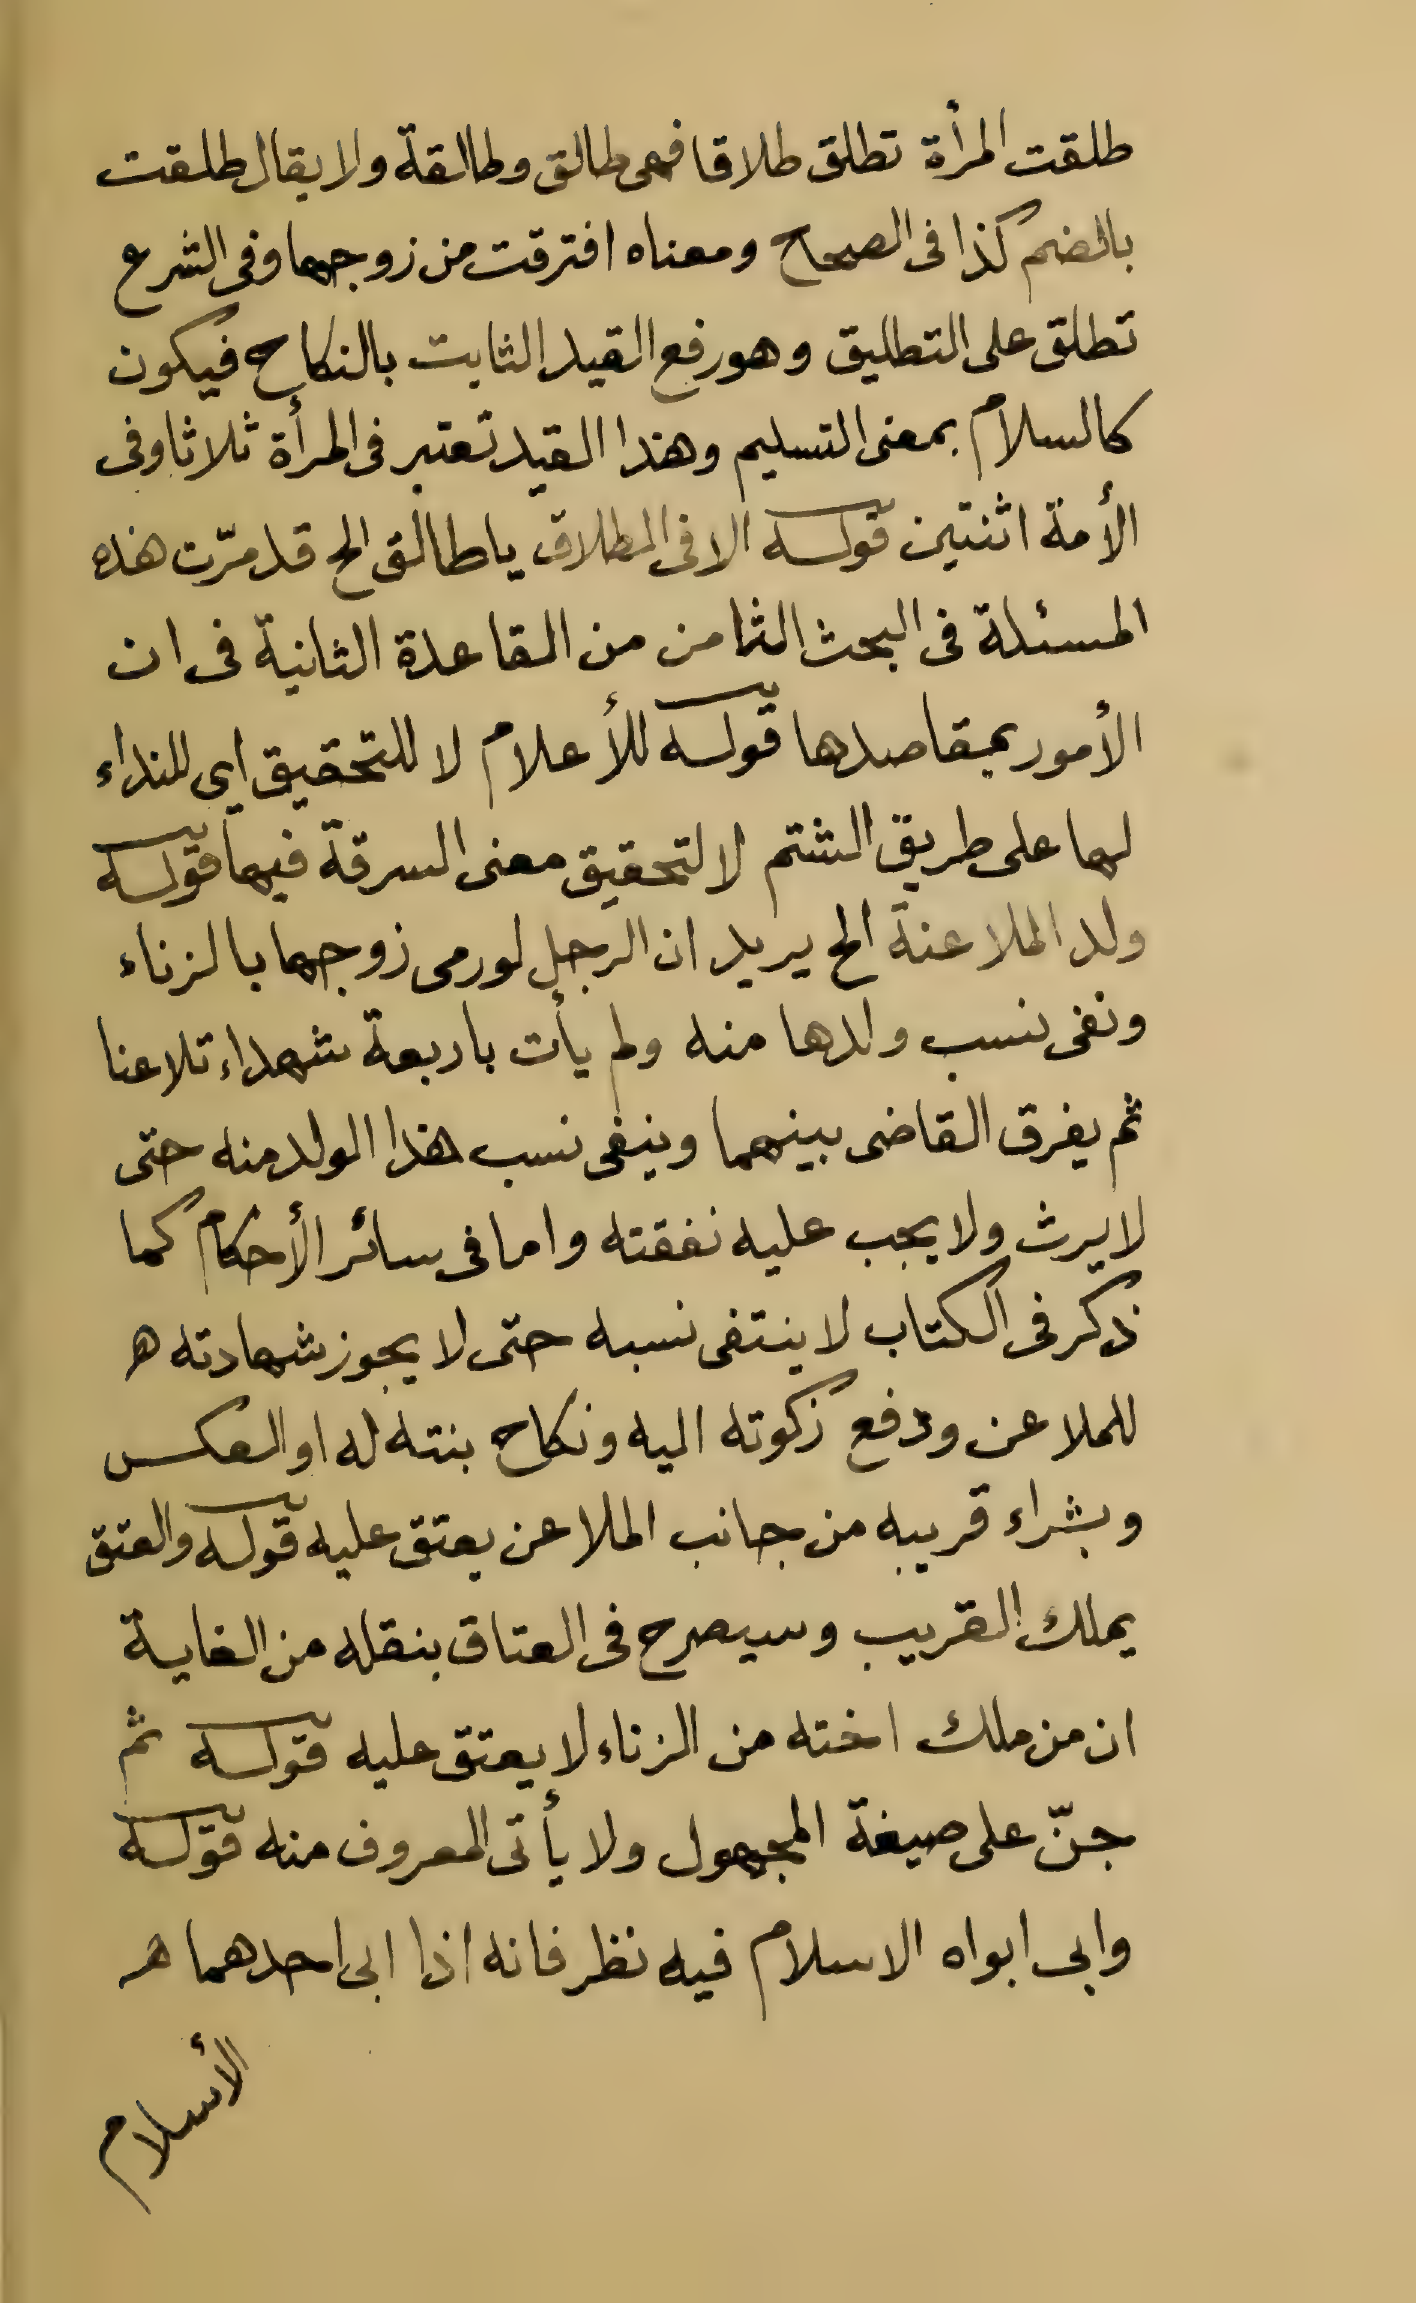 طلقت المرأة تطلق طلاقا فهى طالق وطالقة ولا يقال طلقت
بالضم كذا فى الصحاح ومعناه افترقت من زوجها وفى الشرع
تطلق على التطليق وهو رفع القيد الثابت بالنكاح فيكون
كالسلام بمعنى التسليم وهذا القيد تعتبر فى المرأة ثلاثا وفى
الأمة اثنتين قوله الا فى المطلاق يا طالق الخ قد مرّت هذه
المسئلة فى البحث الثامن من القاعدة الثانية فى ان
الأمور بمقاصدها قوله للأعلام لا للتحقيق اى للنداء
لها على طريق الشتم لا لتحقيق معنى السرقة فيها قوله
ولد الملاعنة الخ يريد ان الرجل لو رمى زوجها بالزناء
ونفى نسب ولدها منه ولم يأت باربعة شهداء تلاعنا
ثم يفرق القاضى بينهما وينفى نسب هذا الولد منه حتى
لا يرث ولا يجب عليه نفقته واما فى سائر الأحكام كما
ذكر فى الكتاب لا ينتفى نسبه حتى لا يجوز شهادته ه
للملاعن ودفع زكوته اليه ونكاح بنته له او العكس
وبشراء قريبه من جانب الملاعن يعتق عليه قوله والعتق
يملك القريب وسيصرح فى العتاق بنقله من الغاية
ان من ملك اخته من الزناء لا يعتق عليه قوله ثم
جنّ على صيغة المجهول ولا يأتى المعروف منه قوله
وابى ابواه الاسلام فيه نظر فانه اذا ابى احدهما ه
الأسلام